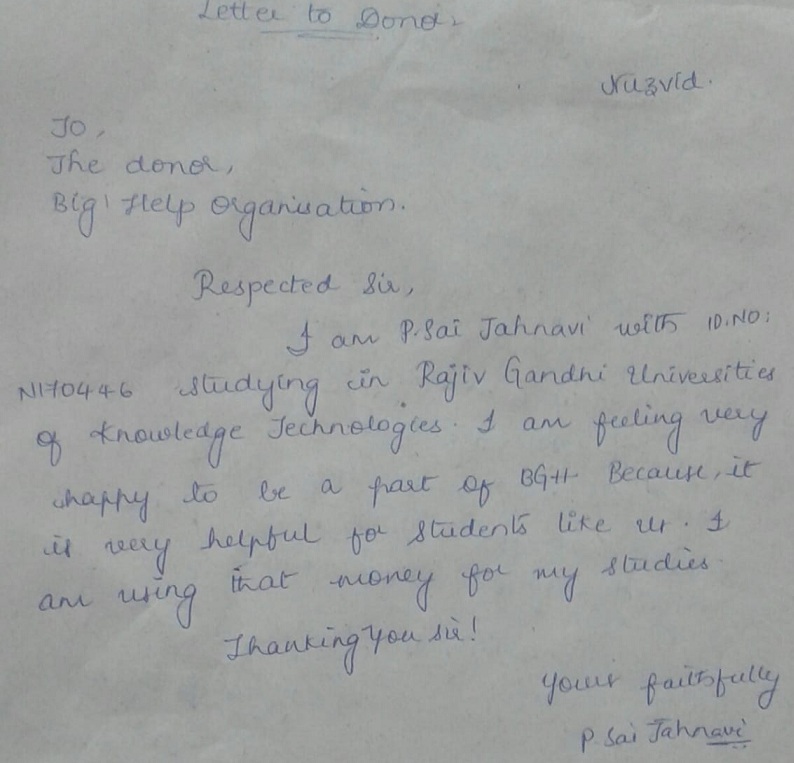 Letter to Donor
Nuzvid.
To,
The donor,
Big Help Organisation.
Respected Sir,
I am P.Sai Jahnavi with ID.NO:
N170446 studying in Rajiv Gandhi Universities
of Knowledge Technologies. I am feeling very
happy to be a part of BGH Because, it
is very helpful for students like us. I
am using that money for my studies.
Thanking you sir!
Yours faithfully
P. Sai Jahnavi